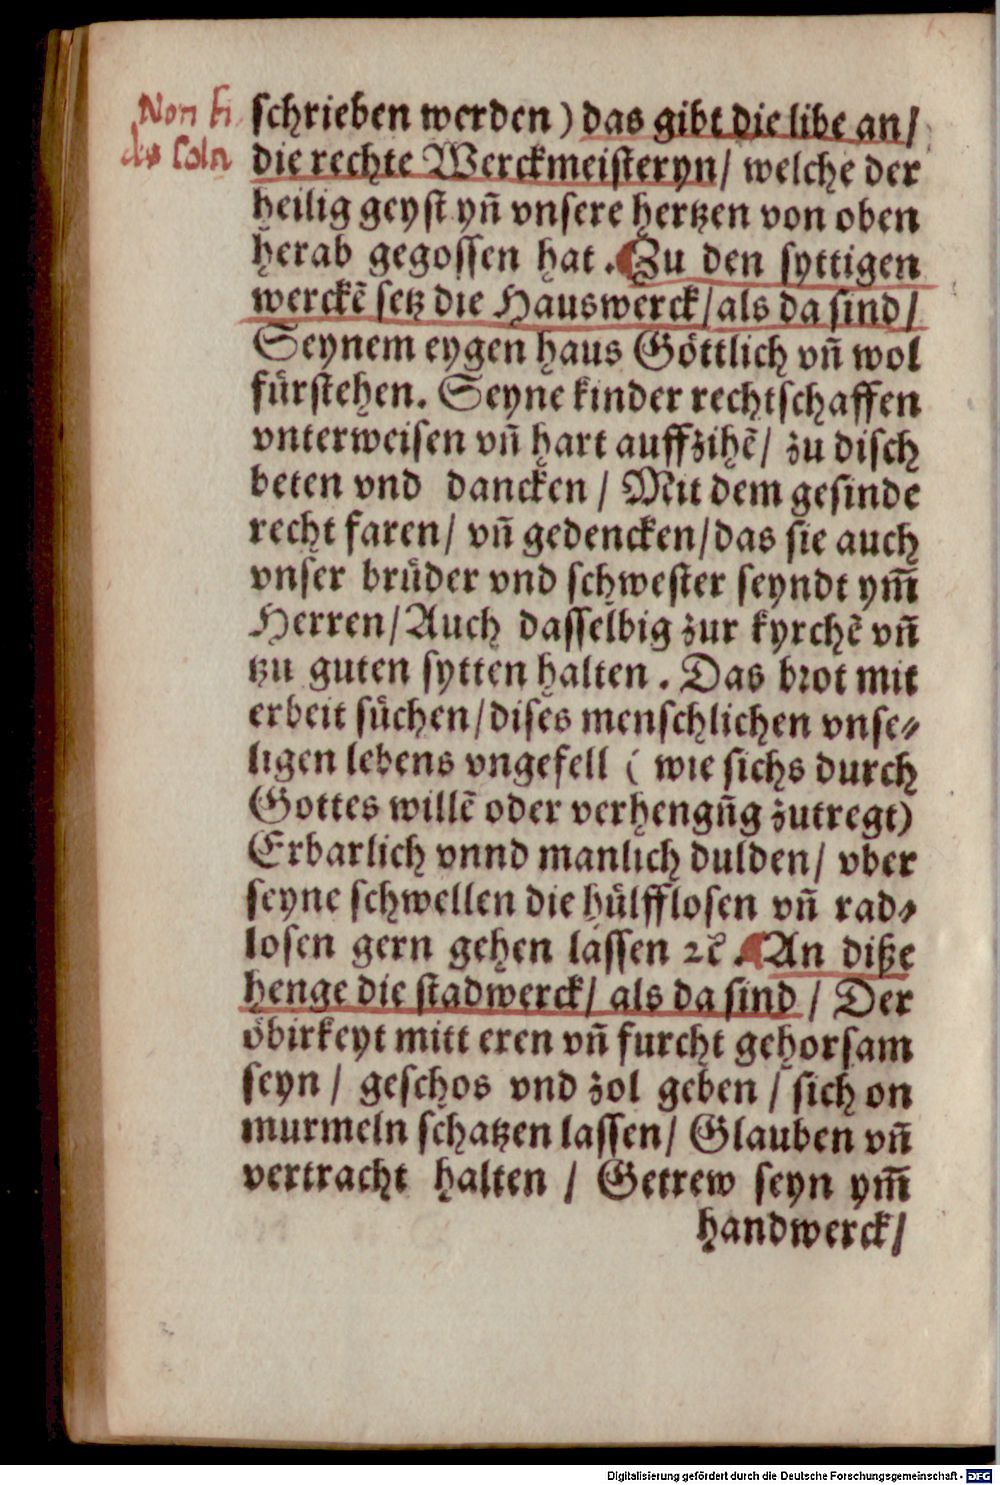 Non fi
des sola
schrieben werden) das gibt die libe an/
die rechte Werckmeisteryn/ welche der
heilig geyst yñ vnsere hertzen von oben
herab gegossen hat. Zu den syttigen
werckẽ setz die Hauswerck/als da sind/
Seynem eygen haus Göttlich vñ wol
fürstehen. Seyne kinder rechtschaffen
vnterweisen vñ hart auffzihẽ/ zu disch
beten vnd dancken / Mit dem gesinde
recht faren/ vñ gedencken/das sie auch
vnser brüder vnd schwester seyndt ym̃
Herren/Auch dasselbig zur kyrchẽ vñ
tzu guten sytten halten. Das brot mit
erbeit süchen/dises menschlichen vnse⸗
ligen lebens vngefell ( wie sichs durch
Gottes willẽ oder verhengñg zutregt)
Erbarlich vnnd manlich dulden/ vber
seyne schwellen die hülfflosen vñ rad⸗
losen gern gehen lassen ⁊c̃. An diße
henge die stadwerck/ als da sind / Der
öbirkeyt mitt eren vñ furcht gehorsam
seyn / geschos vnd zol geben / sich on
murmeln schatzen lassen/ Glauben vñ
vertracht halten / Getrew seyn ym̃
handwerck/
Digitalisierung gefördert durch die Deutsche Forschungsgemeinschaft - DFG